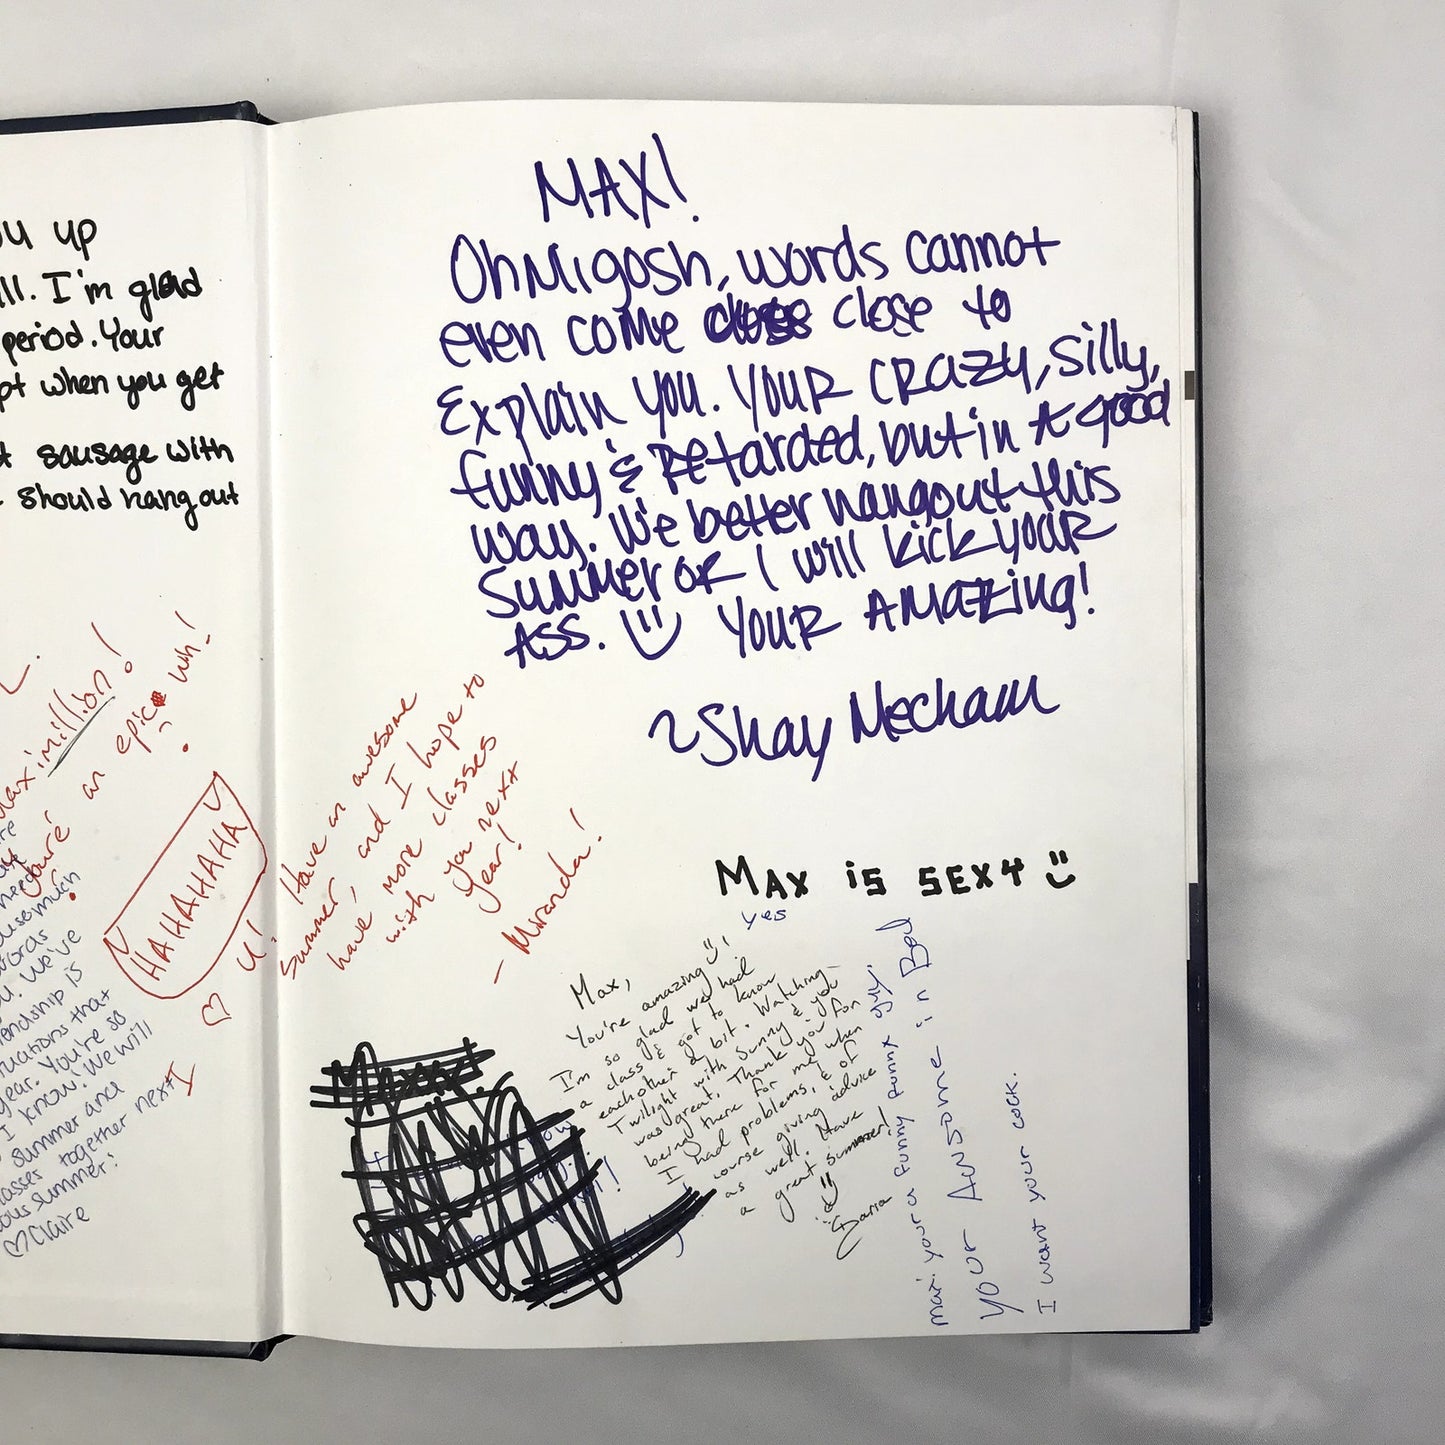 u up
ll. I'm glad
period. Your
pt when you get
t sausage with
should hang out
Maximillion!
You're an epic win!
HAHAHAHA
need
so much
words
u. We've
endship is
tuations that
year. You're so
I know. We will
summer and
lasses together next
ous summer!
♡Claire
MAX!
OhMigosh, words cannot
even come close to
Explain you. YOUR CRAZY, Silly,
funny & Retarded, but in A good
way. We better hangout this
Summer OR I will kick YOUR
ASS. YOUR AMAZing!
~Shay Mecham
Have an awesome
summer, and I hope to
have more classes
with you next
year!
- Miranda!
MAX is SEXY
yes
Max,
You're amazing!
I'm so glad we had
a class & got to know
each other a bit. Watching
Twilight with Sunny & you
was great. Thank you for
being there for me when
I had problems, & of
course giving advice
as well. Have
a great summer!
max. your a funny funny guy.
your Awsome in Bed
I want your cock.